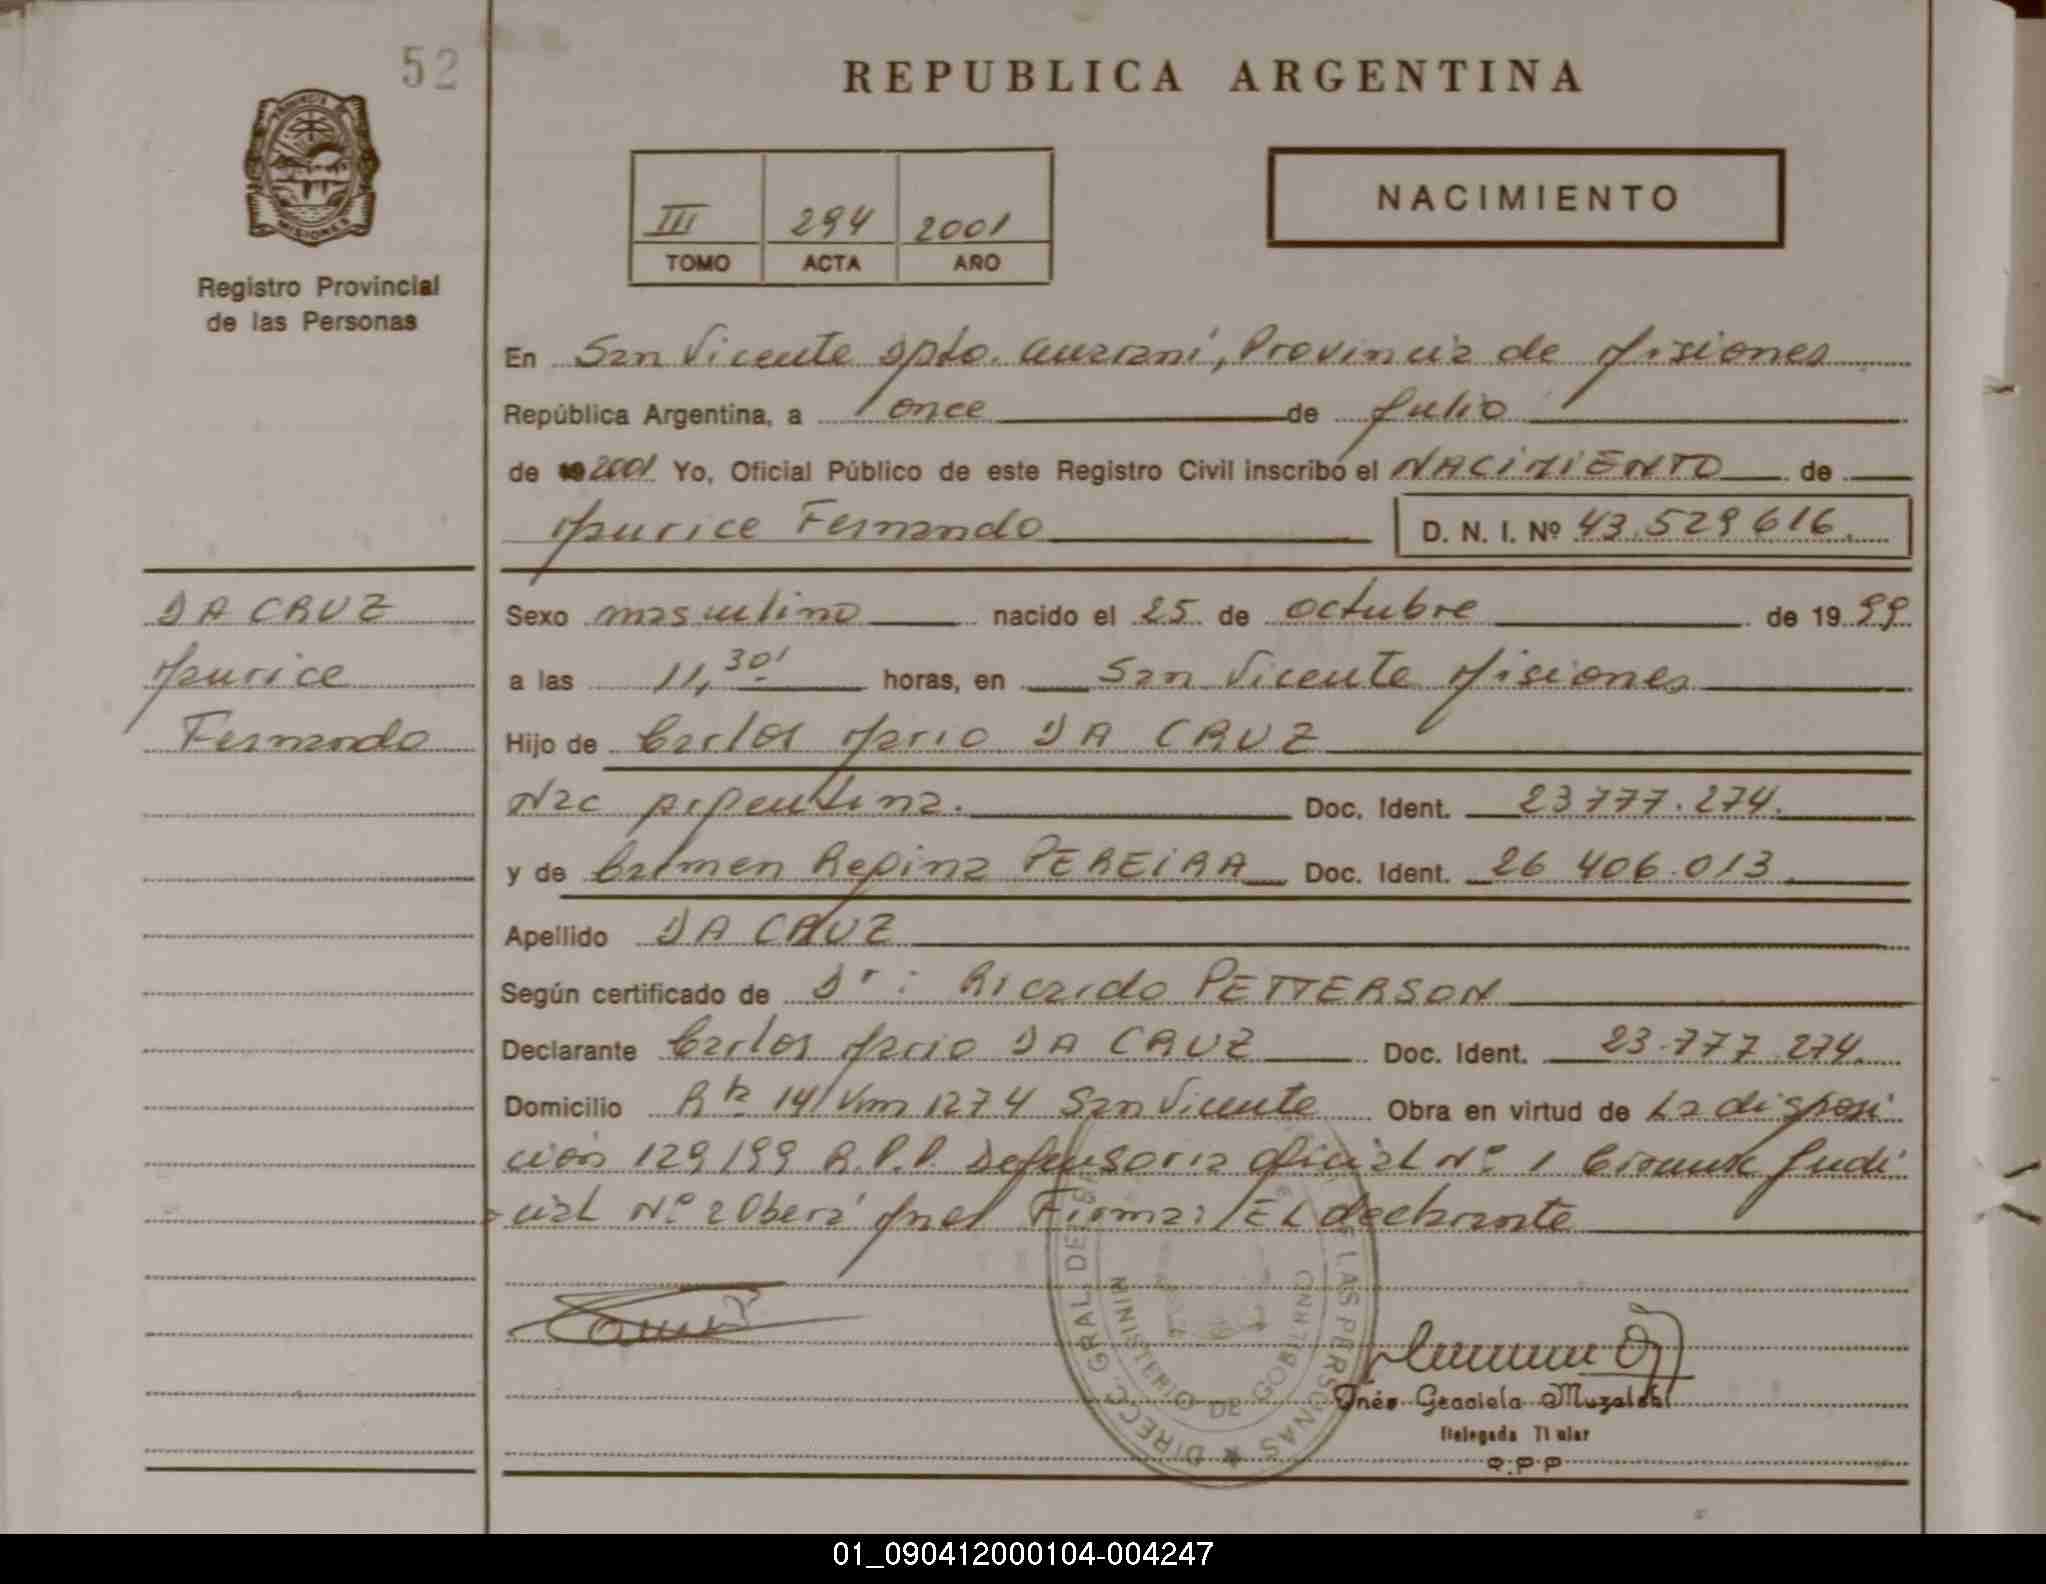 52
REPUBLICA ARGENTINA
PROVINCIA DE MISIONES
Registro Provincial
de las Personas
III 294 2001
TOMO ACTA AÑO
NACIMIENTO
En San Vicente Dpto. Guaraní, Provincia de Misiones
República Argentina, a once de Julio
de 19 2001 Yo, Oficial Público de este Registro Civil inscribo el NACIMIENTO de
Maurice Fernando D. N. I. Nº 43.529616.
DA CRUZ
Maurice
Fernando
Sexo masculino nacido el 25 de octubre de 19 99
a las 11,30' horas, en San Vicente Misiones
Hijo de Carlos Mario DA CRUZ
Nac argentina. Doc. Ident. 23777.274.
y de Carmen Regina PEREIRA Doc. Ident. 26 406.013
Apellido DA CRUZ
Según certificado de Dr: Ricardo PETTERSON
Declarante Carlos Mario DA CRUZ Doc. Ident. 23.777.274.
Domicilio Rta 14 Km 1274 San Vicente Obra en virtud de La disposi
ción 129/99 R.P.P. Defensoria oficial Nº 1 Circunx Judi
cial Nº 2 Oberá Mnes Firma: EL declarante
DIRECC. GRAL. DE LAS PERSONAS
MINISTERIO DE GOBIERNO
Inés Graciela
Delegada Titular
R.P.P
01_090412000104-004247